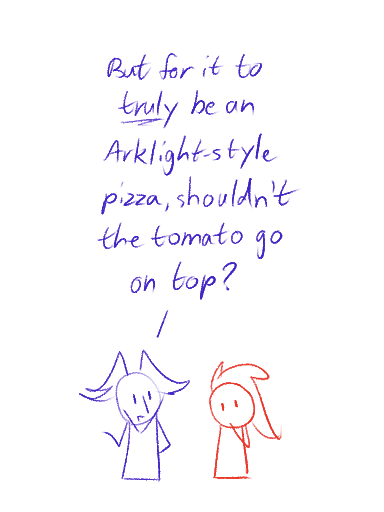 But for it to
truly be an
Arklight-style
pizza, shouldn't
the tomato go
on top?